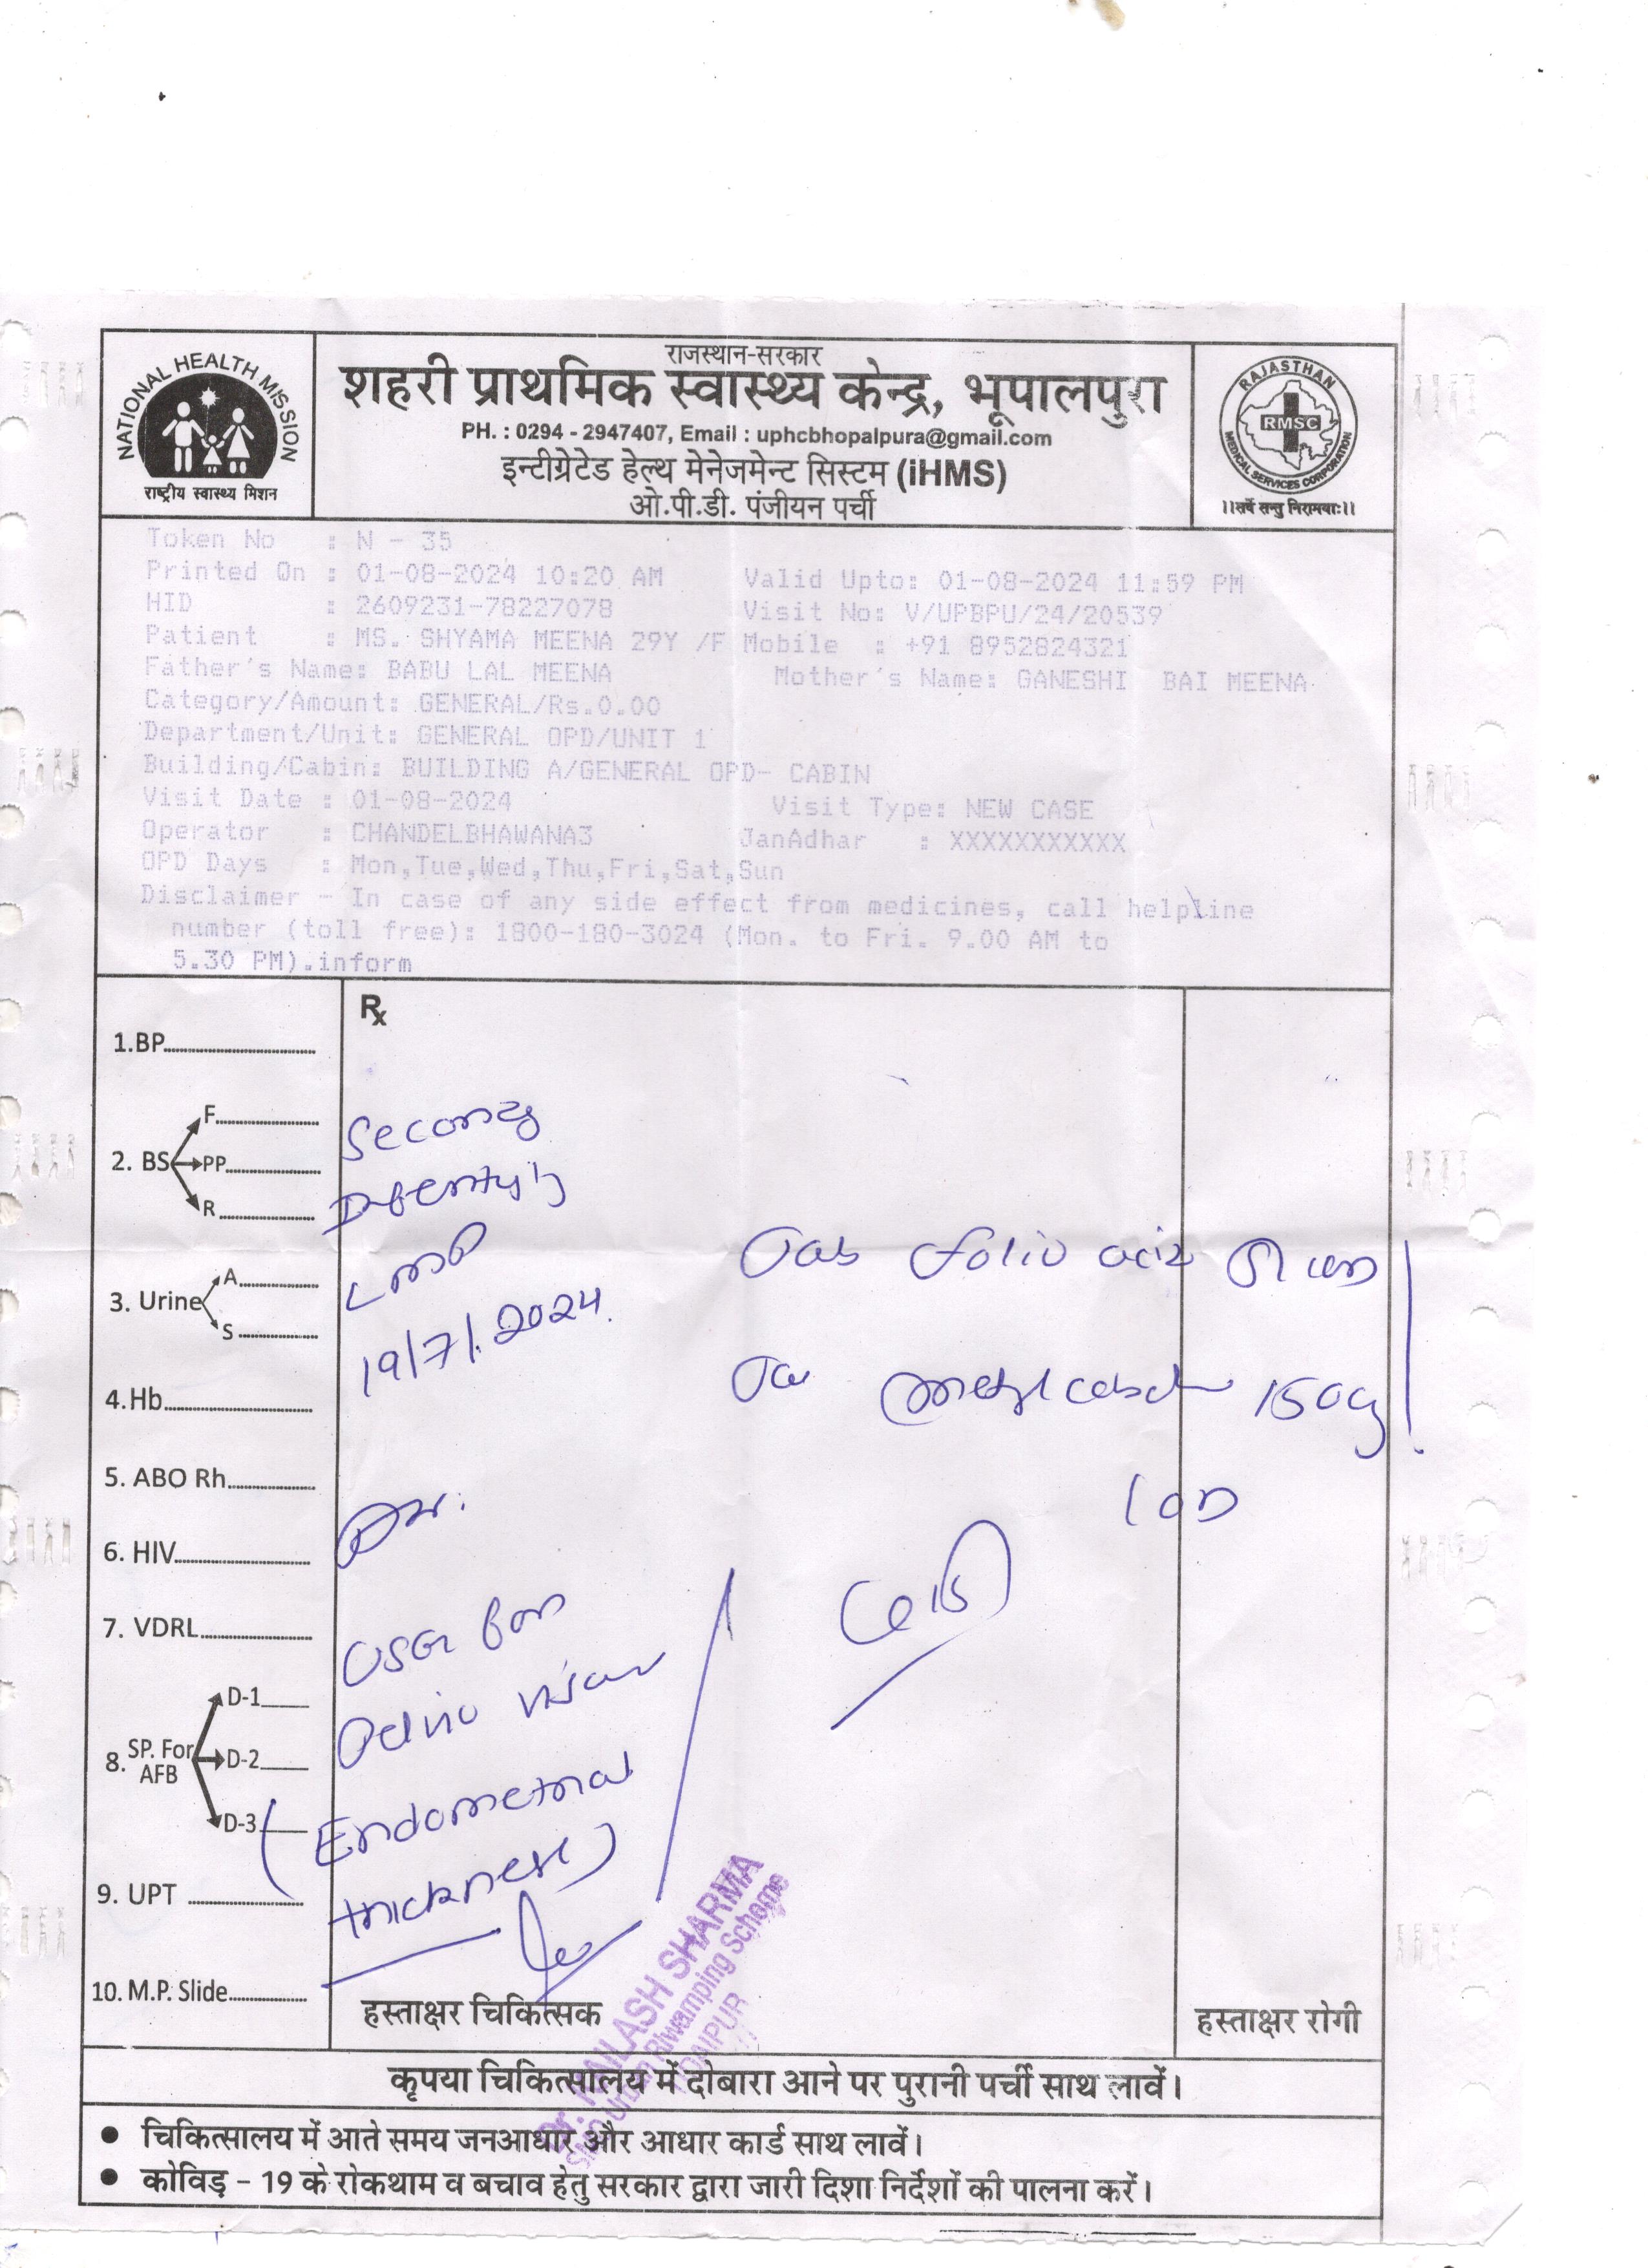 राजस्थान-सरकार
शहरी प्राथमिक स्वास्थ्य केन्द्र, भूपालपुरा
PH. : 0294 - 2947407, Email : uphcbhopalpura@gmail.com
इन्टीग्रेटेड हेल्थ मेनेजमेन्ट सिस्टम (iHMS)
ओ.पी.डी. पंजीयन पर्ची
NATIONAL HEALTH MISSION
राष्ट्रीय स्वास्थ्य मिशन
RAJASTHAN
RMSC
MEDICAL SERVICES CORPORATION
।।सर्वे सन्तु निरामयाः।।
Token No : N - 35
Printed On : 01-08-2024 10:20 AM Valid Upto: 01-08-2024 11:59 PM
HID : 2609231-78227078 Visit No: V/UPBPU/24/20539
Patient : MS. SHYAMA MEENA 29Y /F Mobile : +91 8952824321
Father's Name: BABU LAL MEENA Mother's Name: GANESHI BAI MEENA
Category/Amount: GENERAL/Rs.0.00
Department/Unit: GENERAL OPD/UNIT 1
Building/Cabin: BUILDING A/GENERAL OPD- CABIN
Visit Date : 01-08-2024 Visit Type: NEW CASE
Operator : CHANDELBHAWANA3 JanAdhar : XXXXXXXXXXX
OPD Days : Mon,Tue,Wed,Thu,Fri,Sat,Sun
Disclaimer - In case of any side effect from medicines, call helpline
number (toll free): 1800-180-3024 (Mon. to Fri. 9.00 AM to
5.30 PM).inform
Rx
1.BP
2. BS
F
PP
R
3. Urine
A
S
4.Hb
5. ABO Rh
6. HIV
7. VDRL
8. SP. For AFB
D-1
D-2
D-3
9. UPT
10. M.P. Slide
LMP
19/7/2024.
Tab folic acid
Tab
USG for
Pelvic
(Endometrial
thickness)
Dr. KAILASH SHARMA
UDAIPUR
हस्ताक्षर चिकित्सक
हस्ताक्षर रोगी
कृपया चिकित्सालय में दोबारा आने पर पुरानी पर्ची साथ लावें।
● चिकित्सालय में आते समय जनआधार और आधार कार्ड साथ लावें।
● कोविड़ – 19 के रोकथाम व बचाव हेतु सरकार द्वारा जारी दिशा निर्देशों की पालना करें।